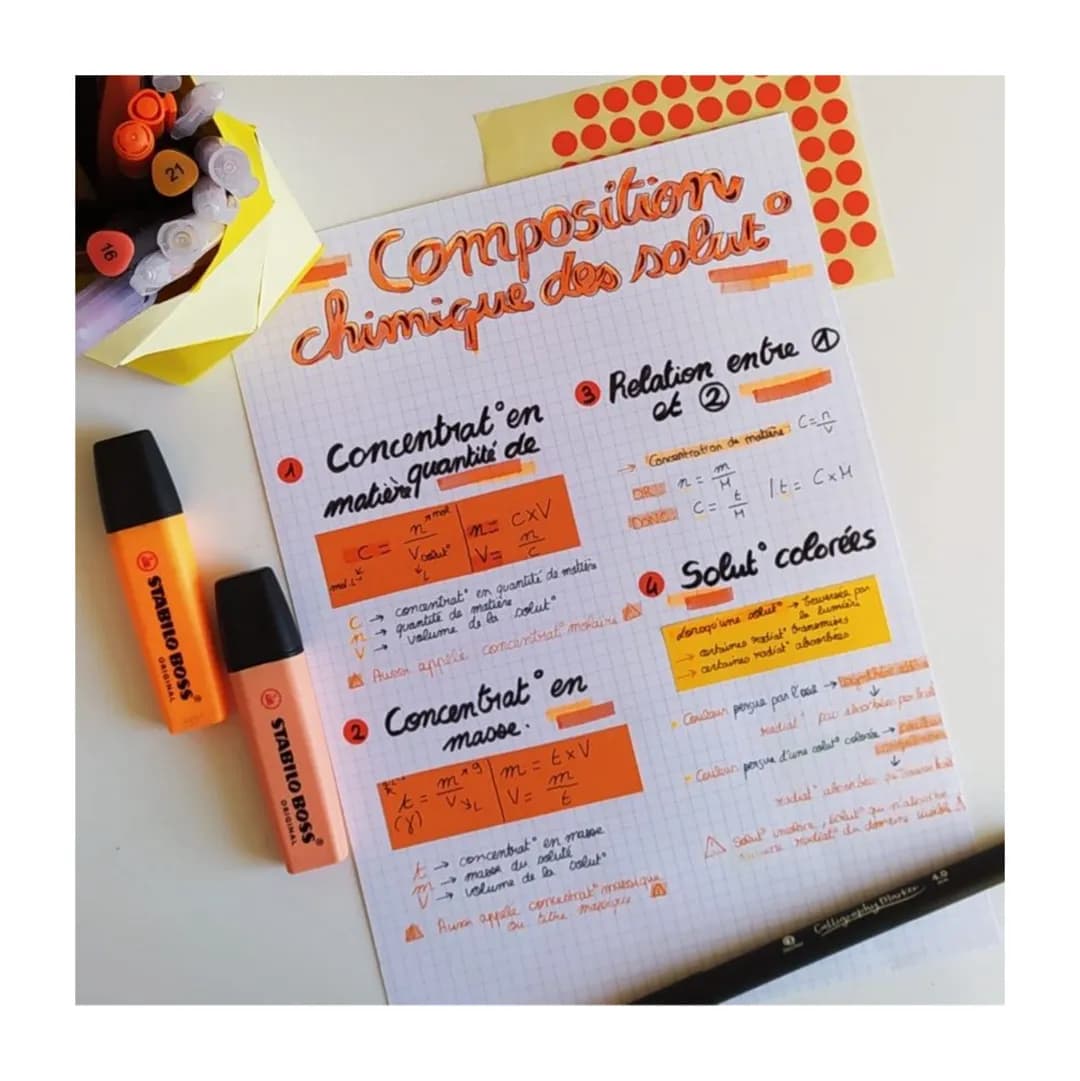 Composition
chimique des solut°
1 Concentrat° en
matière quantité de
C = n → mol / V solut° → L
mol.L⁻¹
n = C x V
V = n / C
C → concentrat° en quantité de matière
n → quantité de matière
V → volume de la solut°
Aussi appelée concentrat° molaire
2 Concentrat° en
masse.
t = m → g / V → L
(γ)
m = t x V
V = m / t
t → concentrat° en masse
m → masse du soluté
V → volume de la solut°
Aussi appelée concentrat° massique
ou titre massique
3 Relation entre 1
et 2
→ Concentration de matière C = n / V
OR : n = m / M
DONC : C = t / M
t = C x M
4 Solut° colorées
Lorsqu'une solut° → traversée par
la lumière
→ certaines radiat° transmises
→ certaines radiat° absorbées
Couleur perçue par l'œil →
radiat° pas absorbées par
Couleur perçue d'une solut° colorée →
radiat° absorbées
Solut° incolore, solut° qui n'absorbe
aucune radiat° du domaine visible
STABILO BOSS
ORIGINAL
STABILO BOSS
ORIGINAL
21
16
Calligraphy Marker 4.0